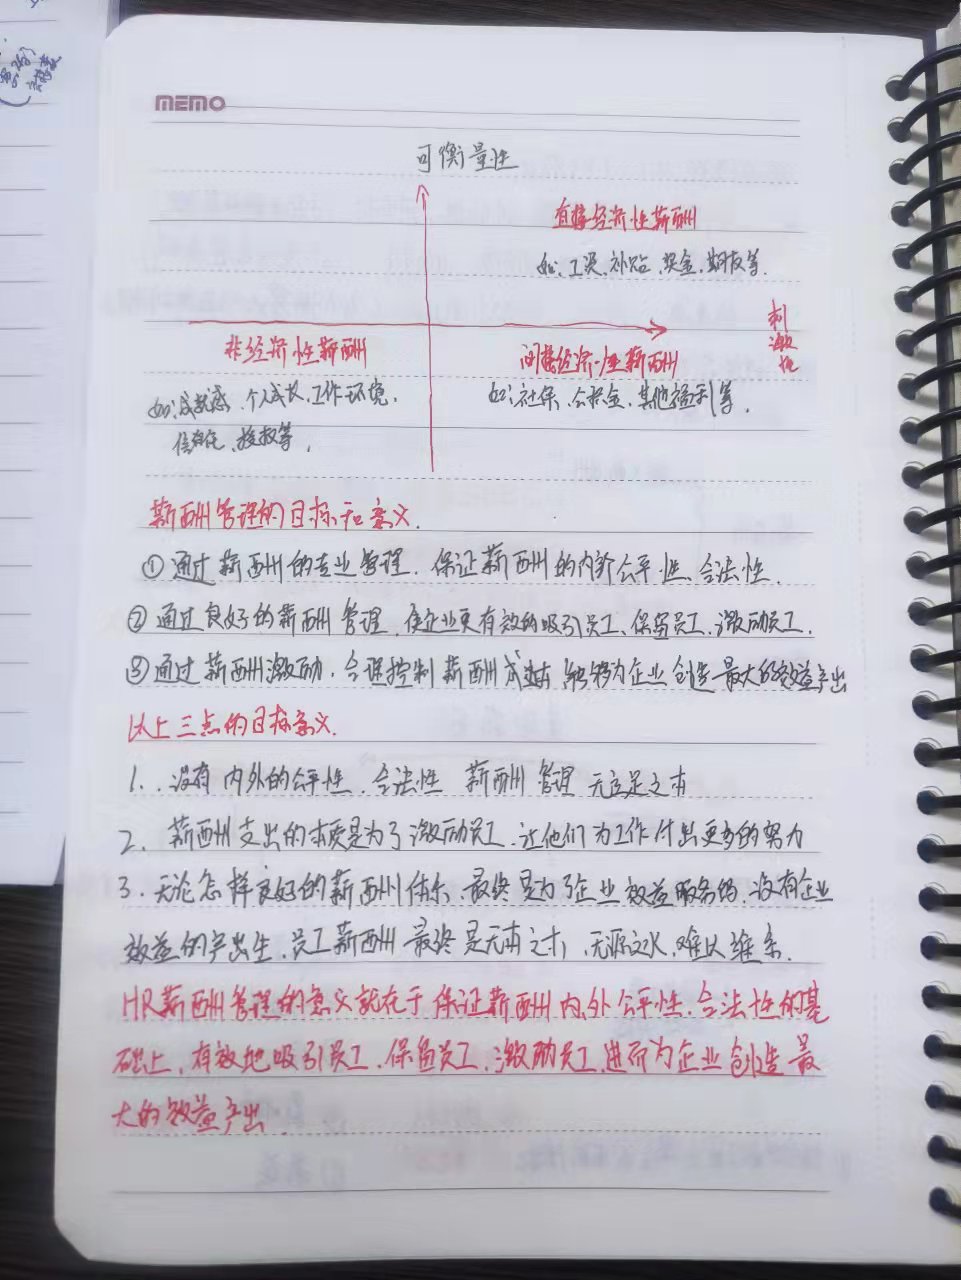 MEMO
可衡量性
直接经济性薪酬
如:工资、补贴、奖金、期权等.
刺激性
非经济性薪酬
间接经济性薪酬
如:成就感、个人成长、工作环境、
如:社保、公积金、其他福利等.
信任、授权等.
薪酬管理的目标和意义.
①通过薪酬的专业管理.保证薪酬的内外公平性、合法性.
②通过良好的薪酬管理,使企业更有效的吸引员工、保留员工、激励员工.
③通过薪酬激励,合理控制薪酬成本,能够为企业创造最大的效益产出
以上三点的目标意义.
1.没有内外的公平性、合法性 薪酬管理无立足之本
2.薪酬支出的本质是为了激励员工.让他们为工作付出更多的努力
3.无论怎样良好的薪酬体系、最终是为了企业效益服务的,没有企业
效益的产出生,员工薪酬最终是无本之木,无源之水,难以维系.
HR薪酬管理的意义就在于保证薪酬内外公平性、合法性的基
础上,有效地吸引员工、保留员工、激励员工,进而为企业创造最
大的效益产出.